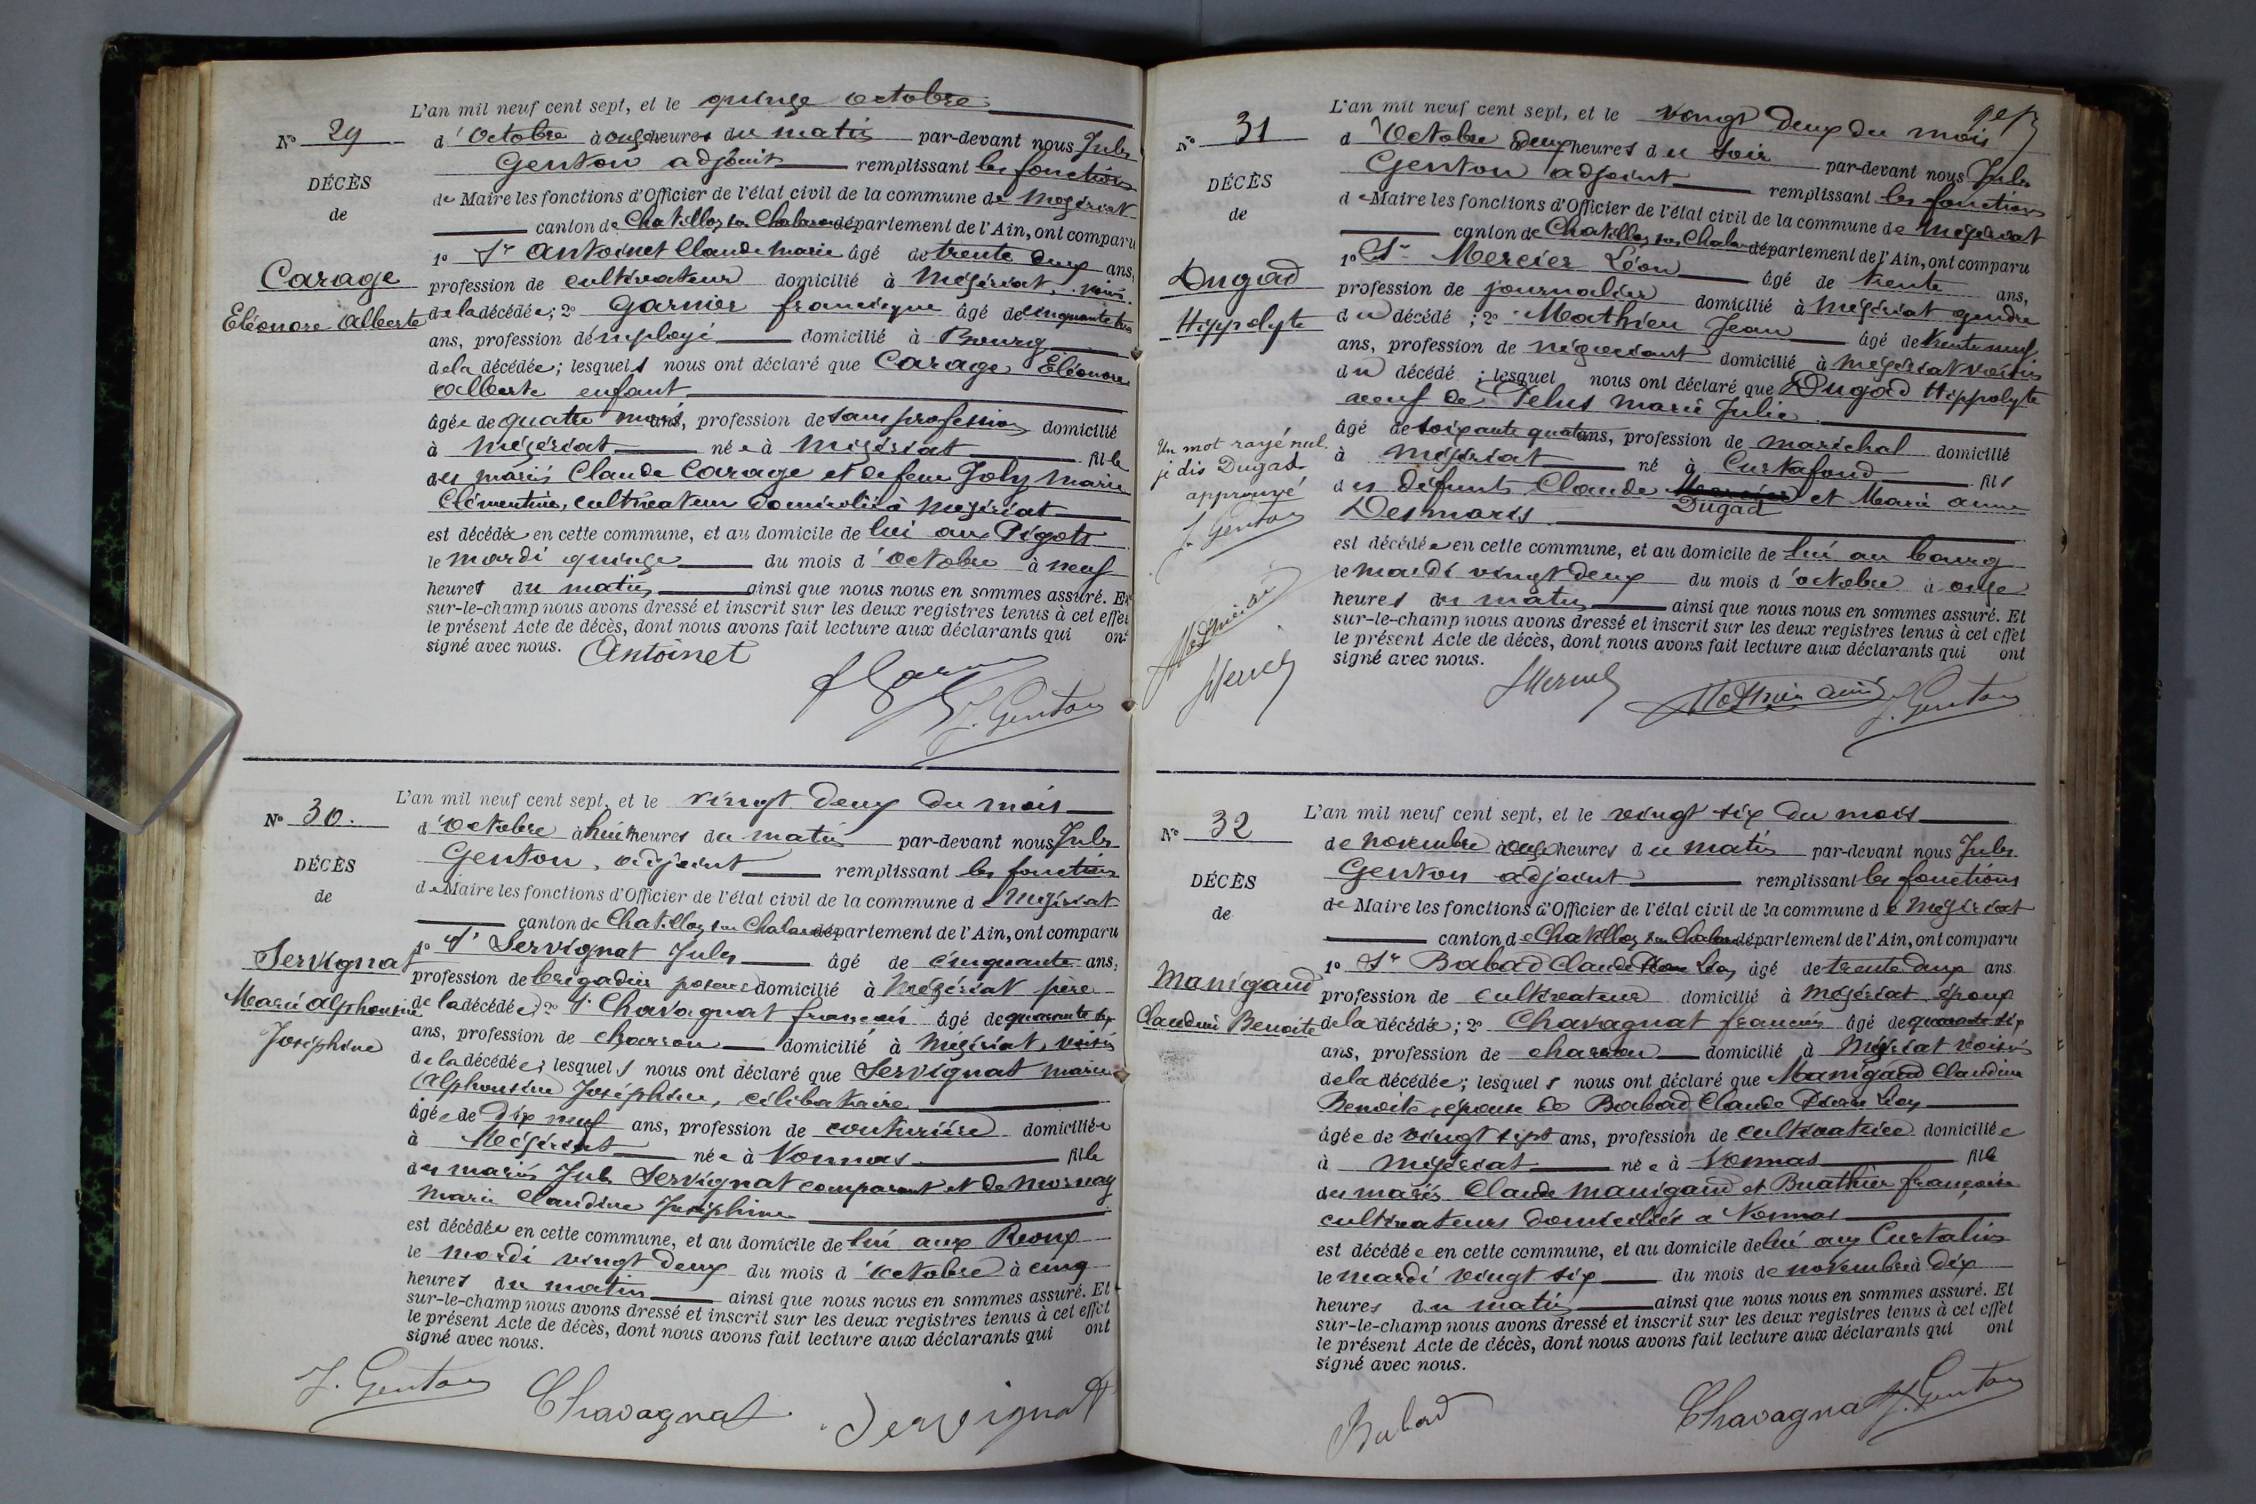 L'an mil neuf cent sept, et le quinze octobre
N° 29
d'Octobre à onze heures du matin par-devant nous Jules
Genton adjoint remplissant les fonctions
DÉCÈS
de Maire les fonctions d'Officier de l'état civil de la commune de Mézériat
de
canton de Chatillon sur Chalaronne département de l'Ain, ont comparu
1° Sr Antoinet Claude Marie âgé de trente deux ans,
Carage
profession de cultivateur domicilié à Mézériat, voisin
Eléonore Alberte
de la décédée; 2° Garnier francisque âgé de cinquante trois
ans, profession d'employé domicilié à Bourg
de la décédée; lesquels nous ont déclaré que Carage Eléonore
Alberte enfant
âgée de quatre mois, profession de sans profession domicilié
à Mézériat née à Mézériat fille
des mariés Claude Carage et de feue Joly Marie
Clémentine, cultivateur domicilié à Mézériat
est décédée en cette commune, et au domicile de lui aux Pigots
le mardi quinze du mois d'octobre à neuf
heures du matin ainsi que nous nous en sommes assuré. Et
sur-le-champ nous avons dressé et inscrit sur les deux registres tenus à cet effet
le présent Acte de décès, dont nous avons fait lecture aux déclarants qui ont
signé avec nous.
Antoinet
J. Genton
L'an mil neuf cent sept, et le vingt deux du mois
N° 30.
d'Octobre à huit heures du matin par-devant nous Jules
Genton, adjoint remplissant les fonctions
DÉCÈS
de Maire les fonctions d'Officier de l'état civil de la commune de Mézériat
de
canton de Chatillon sur Chalaronne département de l'Ain, ont comparu
1° Sr Servignat Jules âgé de cinquante ans,
Servignat
profession de brigadier poseur domicilié à Mézériat père
Marie Alphonsine
de la décédée; 2° Sr Chavagnat françois âgé de quarante six
Joséphine
ans, profession de charron domicilié à Mézériat, voisin
de la décédée; lesquels nous ont déclaré que Servignat Marie
Alphonsine Joséphine, célibataire
âgée de dix neuf ans, profession de couturière domiciliée
à Mézériat née à Vonnas fille
des mariés Jules Servignat comparant et de Mornay
Marie Claudine Joséphine
est décédée en cette commune, et au domicile de lui aux Rioux
le mardi vingt deux du mois d'octobre à cinq
heures du matin ainsi que nous nous en sommes assuré. Et
sur-le-champ nous avons dressé et inscrit sur les deux registres tenus à cet effet
le présent Acte de décès, dont nous avons fait lecture aux déclarants qui ont
signé avec nous.
J. Genton Chavagnat Servignat
L'an mil neuf cent sept, et le vingt deux du mois
N° 31
d'Octobre à deux heures du soir par-devant nous Jules
Genton adjoint remplissant les fonctions
DÉCÈS
de Maire les fonctions d'Officier de l'état civil de la commune de Mézériat
de
canton de Chatillon sur Chalaronne département de l'Ain, ont comparu
1° Sr Mercier Léon âgé de trente ans,
Dugad
profession de journalier domicilié à Mézériat gendre
Hippolyte
du décédé; 2° Mathieu Jean âgé de trente neuf
ans, profession de négociant domicilié à Mézériat voisin
du décédé; lesquel nous ont déclaré que Dugad Hippolyte
veuf de Pelus Marie Julie
âgé de soixante quatre ans, profession de maréchal domicilié
à Mézériat né à Curtafond fils
des défunts Claude et Marie anne
Dugad
Desmaris
Un mot rayé nul.
je dis Dugad
approuvé
J. Genton
est décédé en cette commune, et au domicile de lui au bourg
le mardi vingt deux du mois d'octobre à onze
heures du matin ainsi que nous nous en sommes assuré. Et
sur-le-champ nous avons dressé et inscrit sur les deux registres tenus à cet effet
le présent Acte de décès, dont nous avons fait lecture aux déclarants qui ont
signé avec nous.
J. Genton
L'an mil neuf cent sept, et le vingt six du mois
N° 32
de novembre à onze heures du matin par-devant nous Jules
Genton adjoint remplissant les fonctions
DÉCÈS
de Maire les fonctions d'Officier de l'état civil de la commune de Mézériat
de
canton de Chatillon sur Chalaronne département de l'Ain, ont comparu
1° Sr Babad Claude Léon âgé de trente deux ans
Manigand
profession de cultivateur domicilié à Mézériat époux
Claudine Benoite
de la décédée; 2° Chavagnat françois âgé de quarante six
ans, profession de charron domicilié à Mézériat voisin
de la décédée; lesquels nous ont déclaré que Manigand Claudine
Benoite, épouse de Babad Claude Léon
âgée de vingt sept ans, profession de cultivatrice domiciliée
à Mézériat née à Vonnas fille
des mariés Claude Manigand et Buathier françoise
cultivateurs domiciliés à Vonnas
est décédée en cette commune, et au domicile de lui aux Curtalins
le mardi vingt six du mois de novembre à dix
heures du matin ainsi que nous nous en sommes assuré. Et
sur-le-champ nous avons dressé et inscrit sur les deux registres tenus à cet effet
le présent Acte de décès, dont nous avons fait lecture aux déclarants qui ont
signé avec nous.
Babad Chavagnat J. Genton